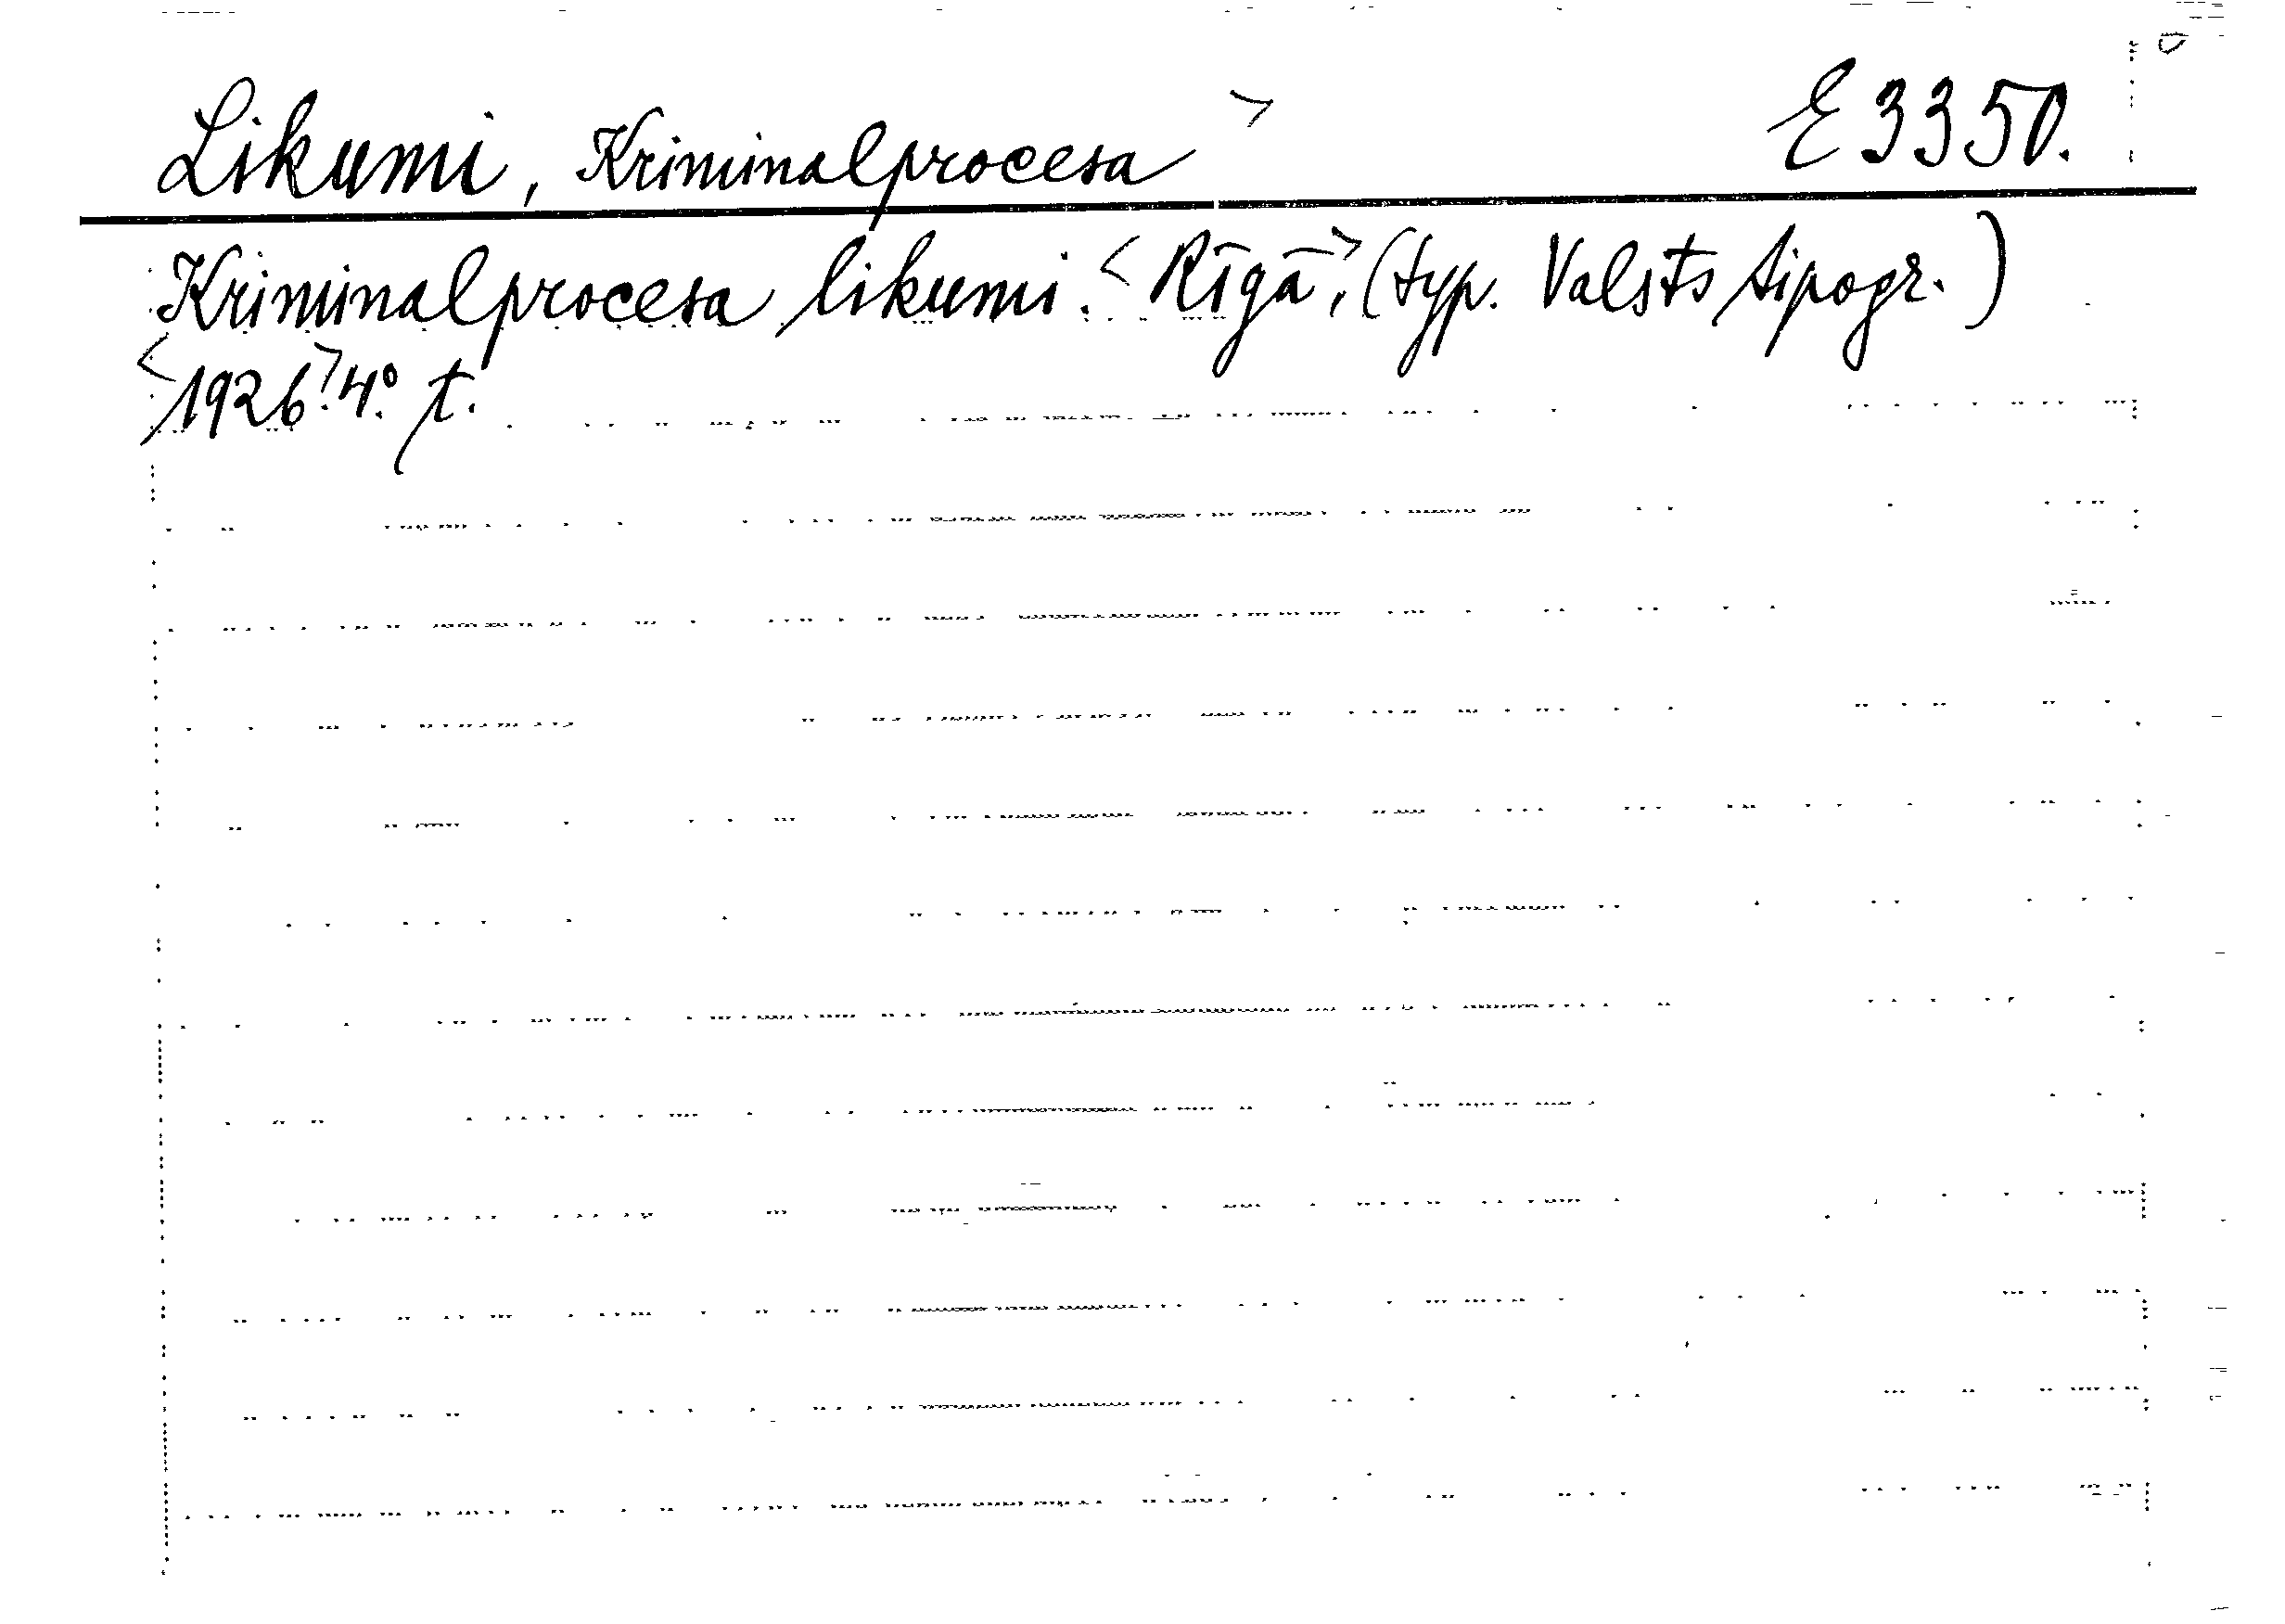 Likumi, Kriminalprocesa > E 3350.
Kriminalprocesa likumi. <Rīgā>, (typ. Valsts tipogr.)
<1926>. 4° t.